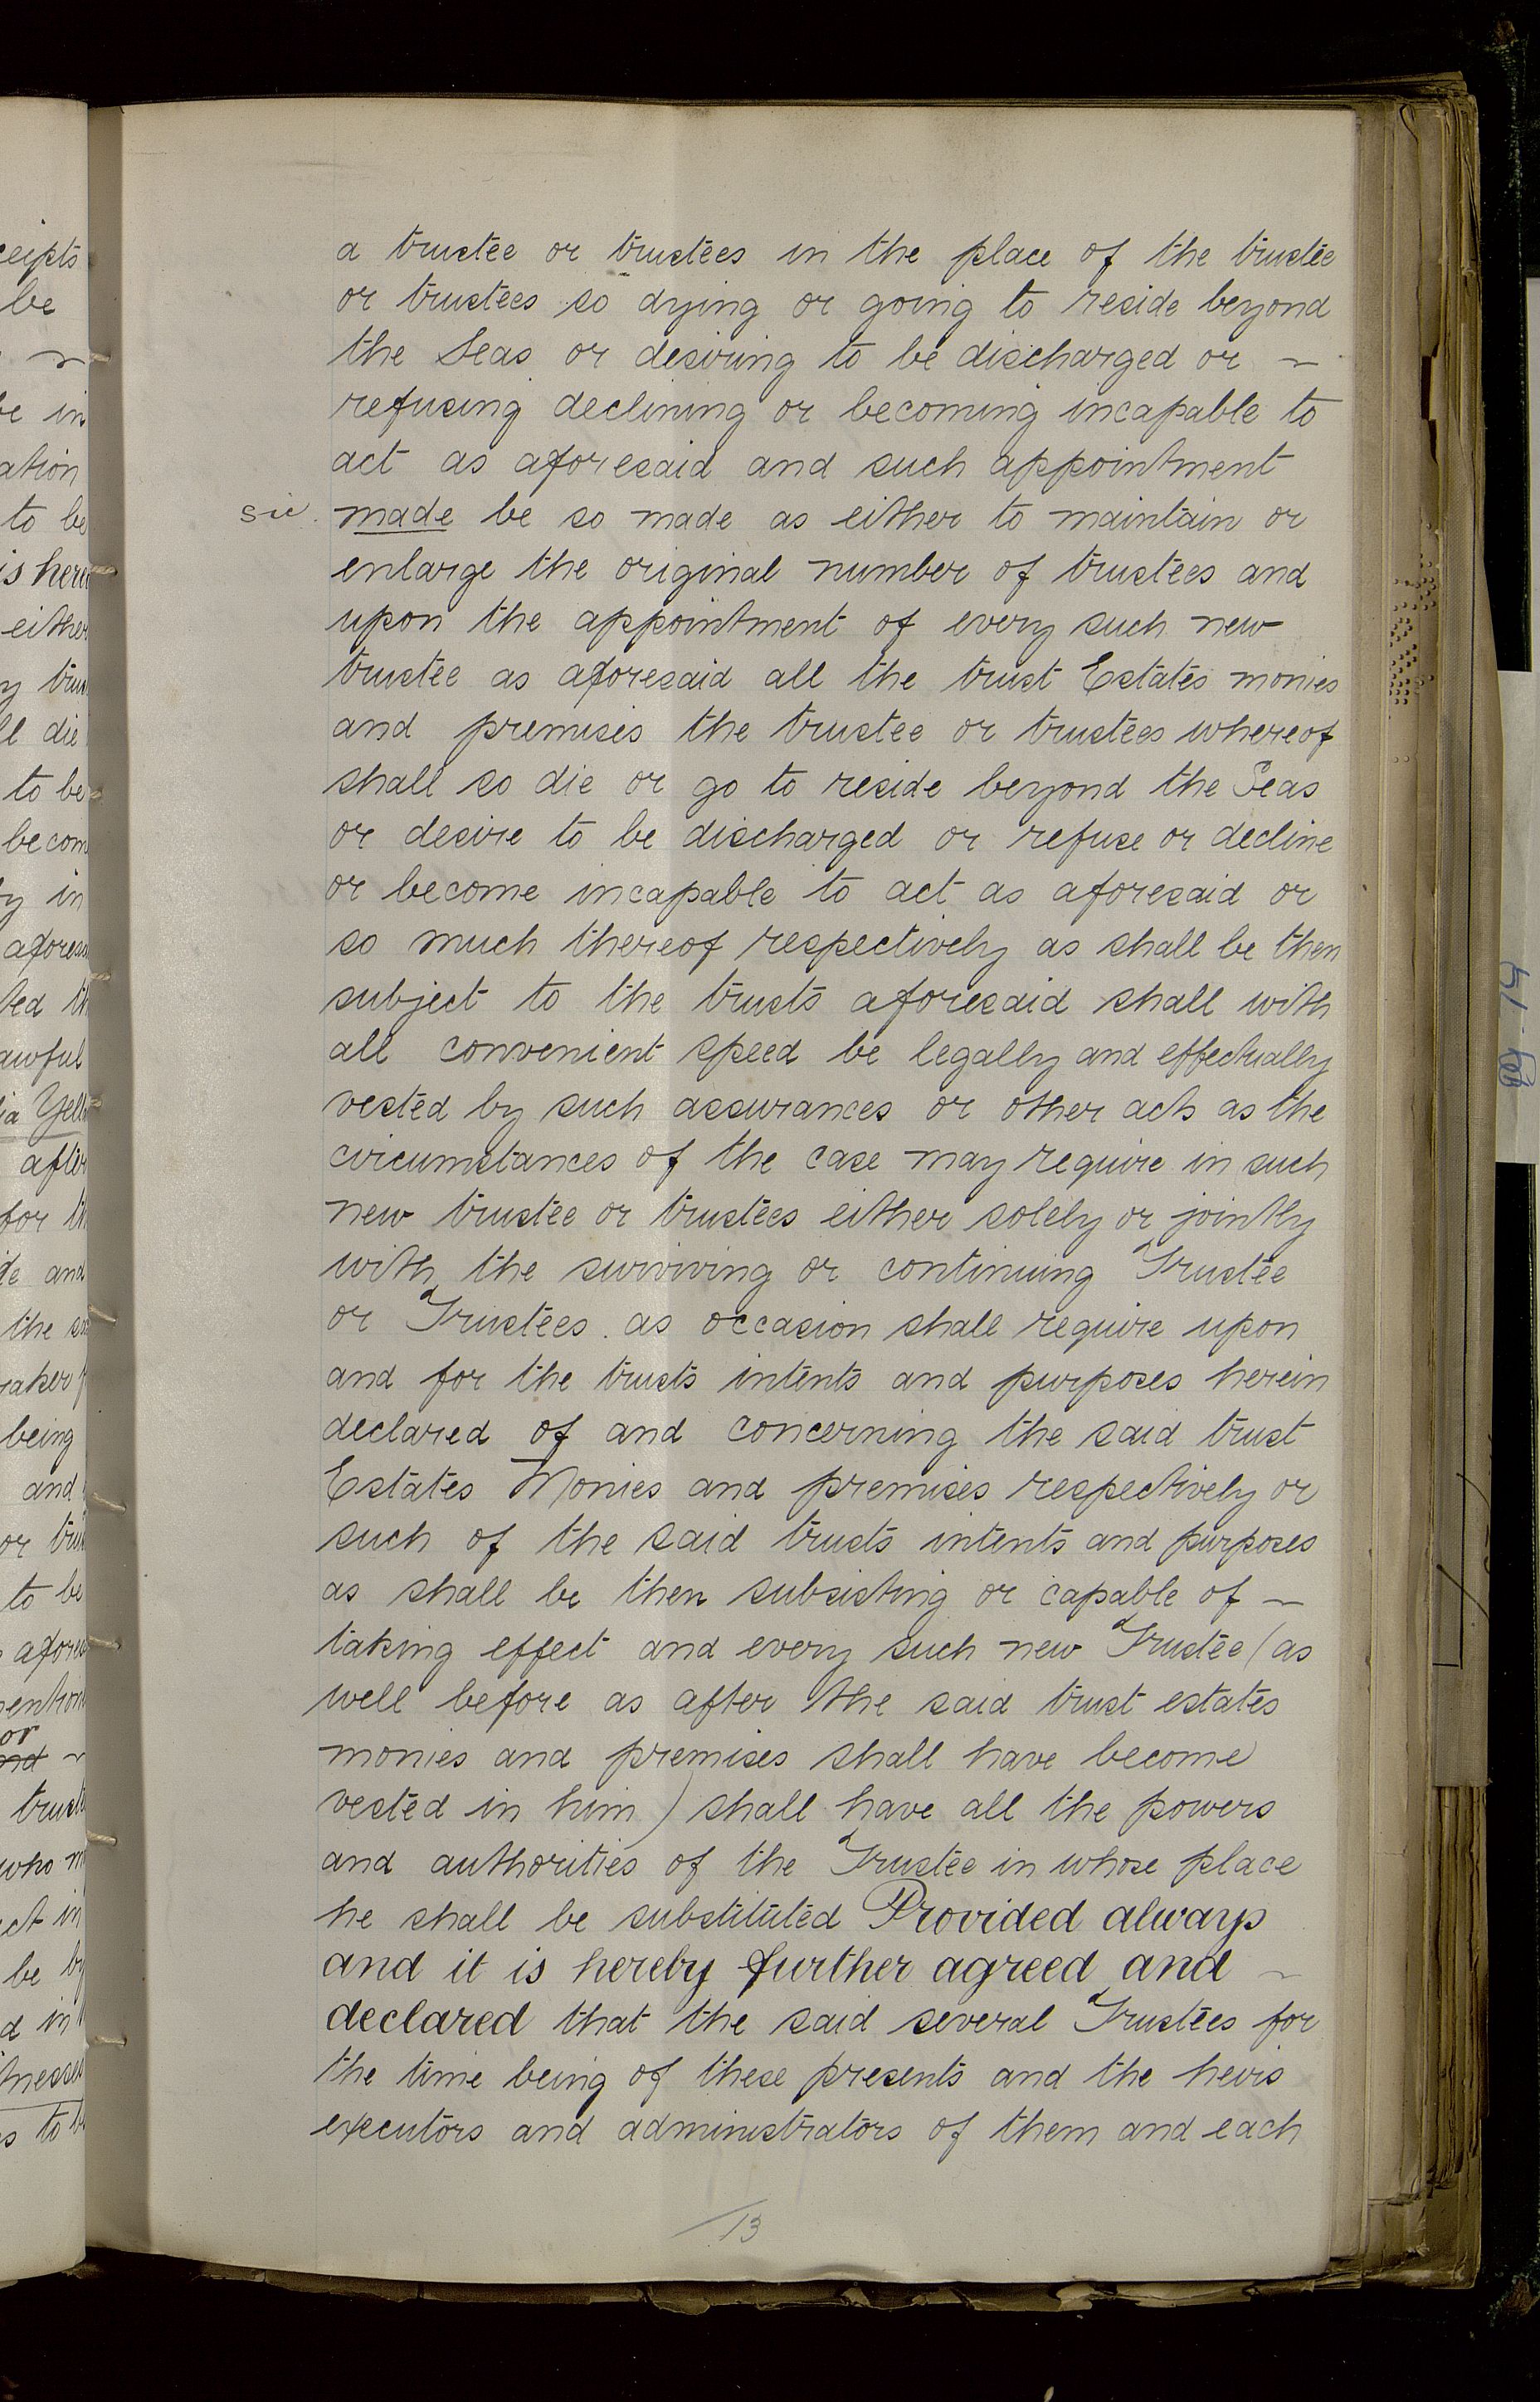 a trustee or trustees in the place of the trustee
or trustees so dying or going to reside beyond
the Seas or desiring to be discharged or ~
refusing declining or becoming incapable to
act as aforesaid and such appointment
sic. made be so made as either to maintain or
enlarge the original number of trustees and
upon the appointment of every such new
trustee as aforesaid all the trust Estates monies
and premises the trustee or trustees whereof
shall so die or go to reside beyond the Seas
or desire to be discharged or refuse or decline
or become incapable to act as aforesaid or
so much thereof respectively as shall be then
subject to the trusts aforesaid shall with
all convenient speed be legally and effectually
vested by such assurances or other acts as the
circumstances of the case may require in such
new trustee or trustees either solely or jointly
with the surviving or continuing Trustee
or Trustees as occasion shall require upon
and for the trusts intents and purposes herein
declared of and concerning the said trust
Estates Monies and premises respectively or
such of the said trusts intents and purposes
as shall be then subsisting or capable of ~
taking effect and every such new Trustee (as
well before as after the said trust estates
monies and premises shall have become
vested in him) shall have all the powers
and authorities of the Trustee in whose place
he shall be substituted Provided always
and it is hereby further agreed and ~
declared that the said several Trustees for
the time being of these presents and the heirs
executors and administrators of them and each
13